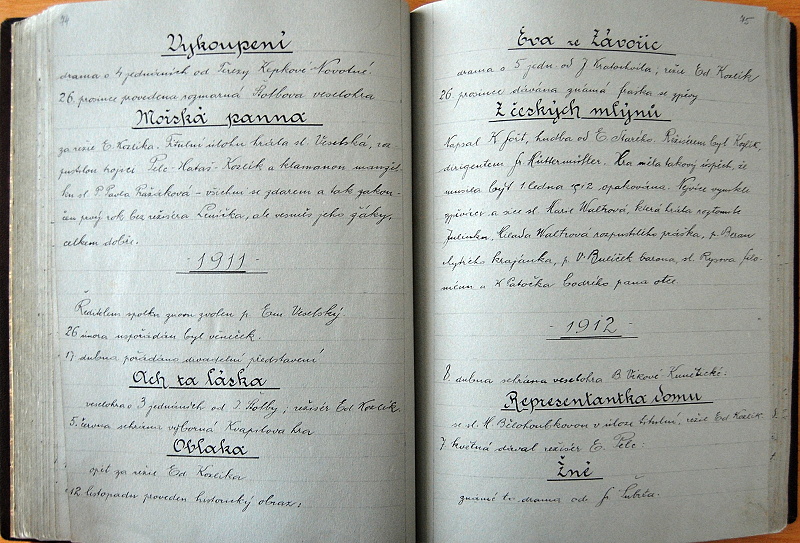 74
Vykoupení
drama o 4 jednáních od Terezy Kepkové-Novotné
26. prosince provedena rozmarná Štolbova veselohra
Mořská panna
za režie E. Kozlíka. Titulní úlohu hrála sl. Veselská, roz-
pustilou trojici Pelc - Hataš - Kozlík a klamanou manžel-
ku sl. P. Pavla Ružáková – všichni se zdarem a tak zakon-
čen prvý rok bez režiséra Leníčka, ale vesměs jeho žáky,
celkem dobře.
- 1911 -
Ředitelem spolku znovu zvolen p. Em. Veselský.
26 února uspořádán byl věneček.
17 dubna pořádáno divadelní představení
Ach ta láska
veselohra o 3 jednáních od J. Štolby; režisér Ed Kozlík.
5. června sehrána výborná Kvapilova hra
Oblaka
opět za režie Ed Kozlíka
12 listopadu proveden historický obraz:
75
Eva ze Závořic
drama o 5 jedn. od J Kratochvíla; režie Ed. Kozlík
26 prosince dávána známá fraška se zpěvy
Z českých mlýnů
Napsal K Fořt, hudba od E. Starého. Režisérem byl Kozlík,
dirigentem Jr Hüttermüller. Hra měla takový úspěch, že
musela býti 1 ledna 1912 opakována. Nejvíce vynikli
zpěvílci a sice sl. Marie Waltrová, která hrála roztomile
Julinku, Mlaďa Waltrová rozpustilého práška, p. Beran
chytrého krajánka, p. V. Bulíček barona, sl. Rysova Filo-
ménu a K Patočka bodrého pana otce.
- 1912 -
8. dubna sehrána veselohra B. Vikové-Kunětické.
Representantka domu
se sl. M. Bělohoubkovou v úloze titulní, režie Ed Kozlík.
7 května dával režisér E. Pelc.
Žně
známé to drama od Fr